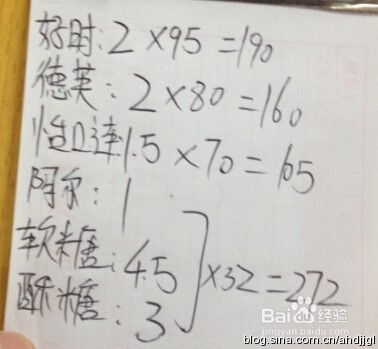 好时:2×95=190
德英:2×80=160
怡口莲1.5×70=105
阿尔:1
软糖:4.5
酥糖:3
]×32=272
Baidu经验
jingyan
blog.sina.com.cn/ahdjjgl